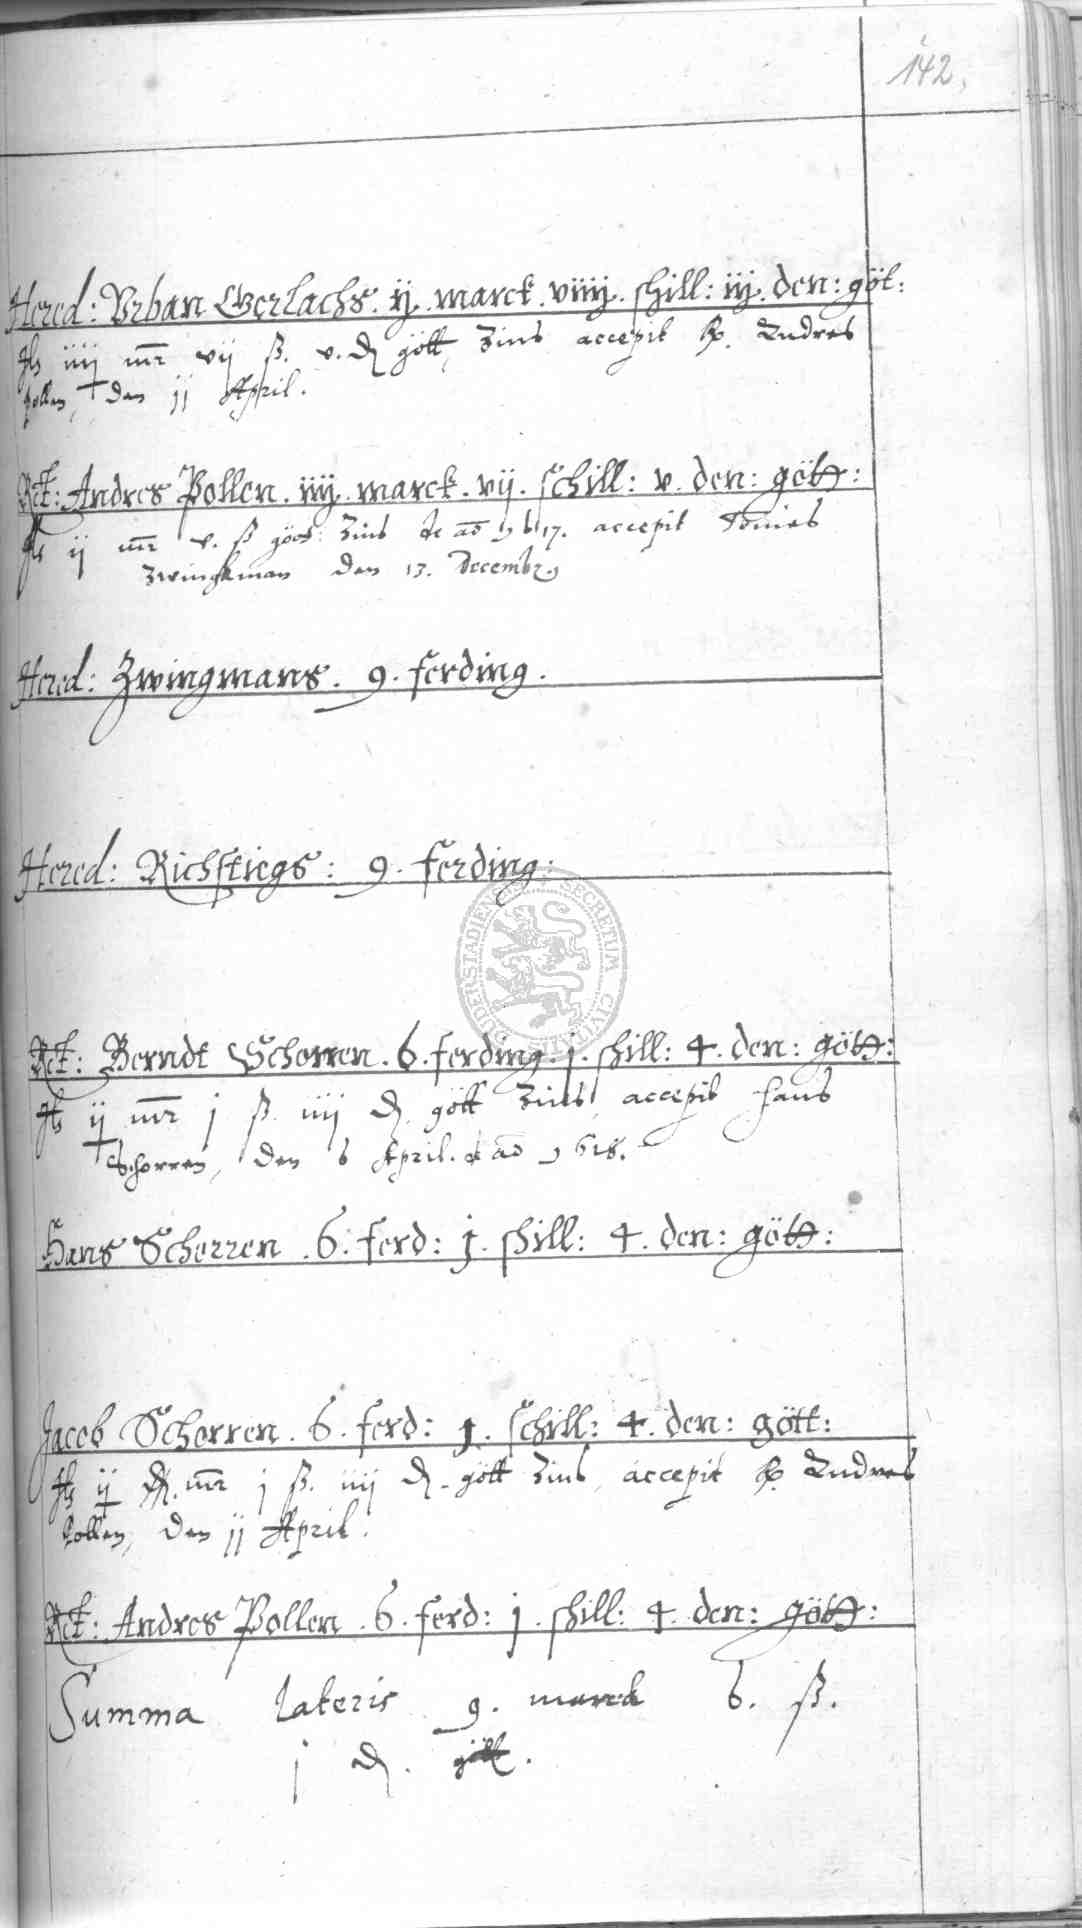 142.
Hered: Vrban Gerlachs. ij. marck. viiij. shill: iij. den: göt:
iiij mr vij ß. v. d gött, Zins accepit H. Andres
Pollen, den jj April.
Rct: Andres Pollen. iiij. marck. vij. schill: v. den: gött:
ij mr v. ß gött Zins de ao 1617. accepit Tönies
Zwingkman den 13. Decembr.
Hered: Zwingmans. 9. ferding.
Hered: Richstiegs: 9. ferding:
DUDERSTADIENSIS SECRETUM CIVITATIS
Rct: Berndt Schorren. 6. ferding. j. shill: 4. den: gött:
ij mr j ß. iiij d gött Zins accepit Hans
Schorren, den 6 April. de ao 1618.
Hans Schorren. 6. ferd: j. shill: 4. den: gött:
Jacob Schorren. 6. ferd: j. schill: 4. den: gött:
ij mr j ß. iiij d. gött Zins, accepit H. Andres
Pollen, den jj April.
Rct: Andres Pollen. 6. ferd: j. shill: 4. den: gött:
Summa lateris 9. marck 6. ß.
j d. gött.